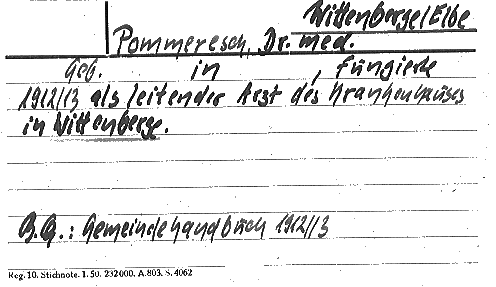 Wittenberge/Elbe
Pommeresch, Dr. med.
Geb. in , fungierte
1912/13 als leitender Arzt des Krankenhauses
in Wittenberge.
B.G.: Gemeindehandbuch 1912/13
Reg. 10. Stichnote. 1. 50. 232000. A. 803. S. 4062